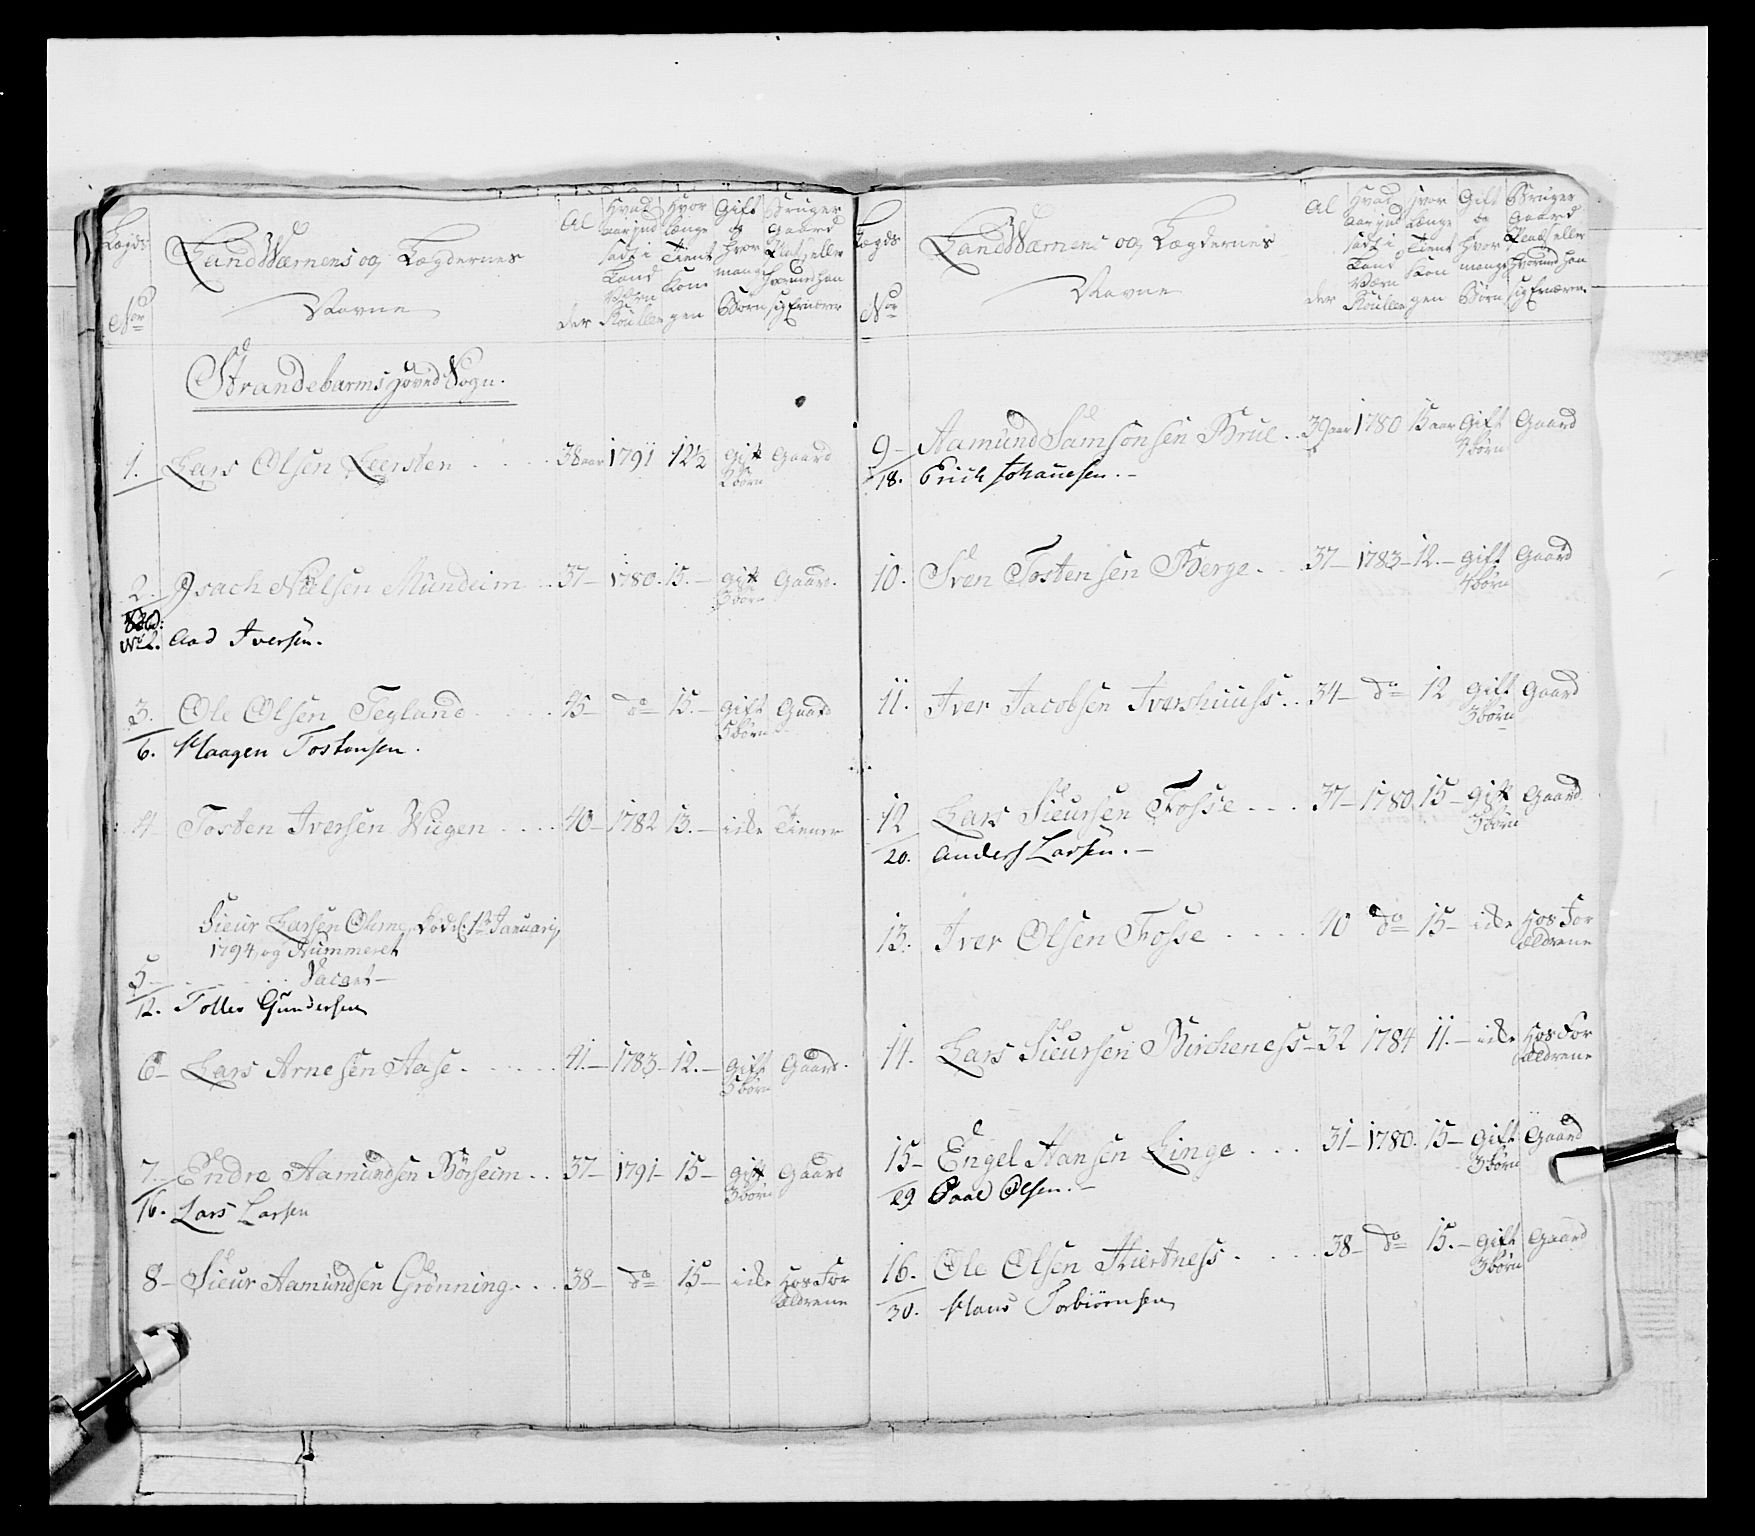 Lægds
No
LandWærnens og Lægdernes
Navne
Al
der
Hvad
Aar ind
sadt i
Land
Værn
Roullen
Hvor
længe
Tient
Kon
gen
Gift
og
Hvor
mange
Børn
Bruger
Gaard
Plads, eller
hvormed han
sig Ernærer
Strandebarms Hoved Sogn.
1. Lars Olsen Leersten . . . . 38 aar 1791 12½ Gift Gaard
2 børn
2. Isach Nielsen Mundeim . . 37 — 1780. 15. — Gift Gaard.
3 børn
No 2. Aad Iversen.
3. Ole Olsen Tegland . . . . 45 — do 15. — Gift Gaard
5 børn
6. Haagen Tostensen.
4 Tosten Iversen Wiigen . . . . 40 — 1782 13. — icke Tiener
Sieur Larsen Olsme, død d. 13 Januarij
1794, og Nummeret
5 — . . . . . . Vacant —
12. Tolles Gundersen
6 — Lars Arnesen Aase . . . . . . 41. — 1783 — 12. — Gift Gaard.
5 børn
7. Endre Aamundsen Børseim . . 37 — 1791 — 15 — Gift Gaard
3 børn
16. Lars Larsen
8 — Sieur Aamundsen Grønning . . . 38 — do 15 — icke Hos For
ældrene
Lægds
No
LandWærnens og Lægdernes
Navne
Al
der
Hvad
Aar ind
sadt i
Land
Værn
Roullen
Hvor
længe
Tient
Kon
gen
Gift
og
Hvor
mange
Børn
Bruger
Gaard
Plads, eller
hvormed han
sig Ernærer
9 — Aamund Samsonsen Brue . . 39 aar 1780 15 aar Gift Gaard
4 børn
18. Erich Johannesen. —
10. Sven Tostensen Berge . . 37 — 1783 — 12. — Gift Gaard
4 børn
11. Iver Jacobsen Ivershuuss . . 34 — do 12 Gift Gaard
3 børn
12 Lars Sieursen Fosse . . . 37 — 1780. 15 — Gift Gaard
3 børn
20. Anders Larsen. —
13. Iver Olsen Fosse . . . . . 40 do 15 — icke Hos For
ældrene
14. Lars Sieursen Bircheness — 32 1784 11. — icke Hos For
ældrene
15 — Engel Hansen Linge . . . 31 — 1780. 15 — Gift Gaard
3 børn
29 Paal Olsen. —
16. Ole Olsen Kiertness . . . . . 38 — do 15. — Gift Gaard
3 børn
30. Hans Torbiørnsen